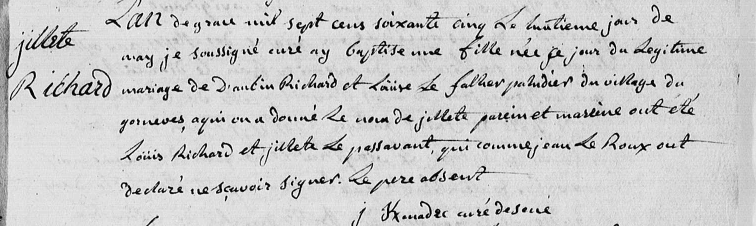 L'an de grace mil sept cens soixante cinq Le huitieme jour de
jillete
may je soussigné curé ay baptise une fille née ce jour du Legitime
Richard
mariage de D'antin Richard et Loüise Le falher paludier du village du
gorneves, a qui on a donné Le nom de jillete parein et mareine ont été
Loüis Richard et jillete Le passavant, qui comme jean Le Roux ont
declaré ne sçavoir signer. Le pere absent
j Kmadec curé de